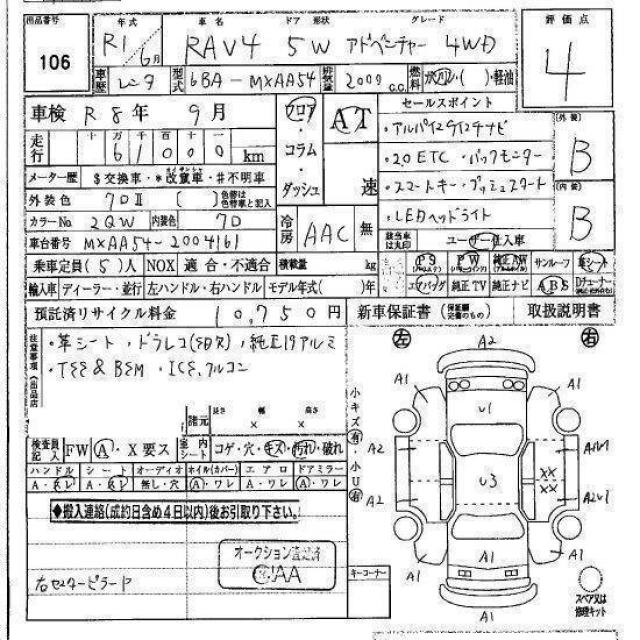 出品番号 年式 車名 ドア 形状 グレード 評価点
106 R1/6月 RAV4 5W アドベンチャー 4WD 4
車歴 レンタ 型式 6BA-MXAA54 排気量 2000 c.c. 燃料 ガソリン・( )・軽油
車検 R8年 9月 フロア・コラム・ダッシュ AT 速 セールスポイント
走行 十 万 千 百 十 一
61000 km
・アルパイン9インチナビ [外装] B
・2.0ETC ・バックモニター
メーター歴 $交換車・*改竄車・#不明車
・スマートキー・プッシュスタート [内装] B
外装色 クロⅡ ( ) 色替は色替車と記入
・LEDヘッドライト
カラーNo 2QW 内装色 クロ 冷房 AAC 無 該当車は丸印 ユーザー仕入車
車台番号 MXAA54-2004161
乗車定員(5)人 NOX 適合・不適合 積載量 kg PS PW 純正AW サンルーフ 革シート
輸入車 ディーラー・並行 左ハンドル・右ハンドル モデル年式( 年式) エアバッグ 純正TV 純正ナビ ABS Dチューナー
預託済リサイクル料金 10,750円 新車保証書(保証書 交換のもの) 取扱説明書
注意事項(出品店)
・革シート・ドラレコ(EDR)・純正19アルミ
・TSS & BSM ・ICS,クルコン
左 A2 右
A1 U1 A1
諸元 長さ × 幅 × 高さ
小キズ有・小U有
検査員記入 FW A・X要ス 室内シート コゲ・穴・キズ・汚れ・破れ
A2 U3 ×× ××
ハンドル シート オーディオ ホイル(カバー) エアロ ドアミラー
A・スレ A・スレ 無し・穴 A・ワレ A・ワレ A・ワレ
A2 A2U1
◆搬入連絡(成約日含め4日以内)後お引取り下さい。
オークション査定済
JAA
A1 A1 A1
右センターピラーP
キーコーナー
A1
スペア又は修理キット